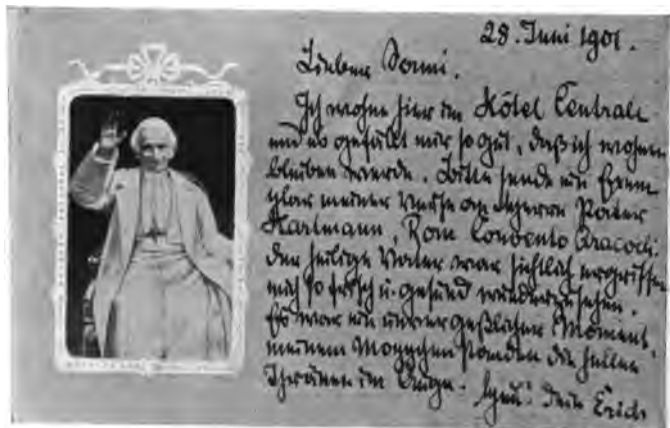 28. Juni 1901.
Lieber Dormi.
Ich wohne hier im Hôtel Centrale
und es gefällt mir so gut, daß ich wohnen
bleiben werde. Bitte sende ein Exem
plar meiner Verse an Herrn Pater
Hartmann, Rom Convento Aracoeli.
Der heilige Vater war sichtlich ergriffen
mich so frisch u. gesund wiederzusehen.
Es war ein unvergeßlicher Moment,
meinem standen die hellen
Thränen im Auge. Dein Erich